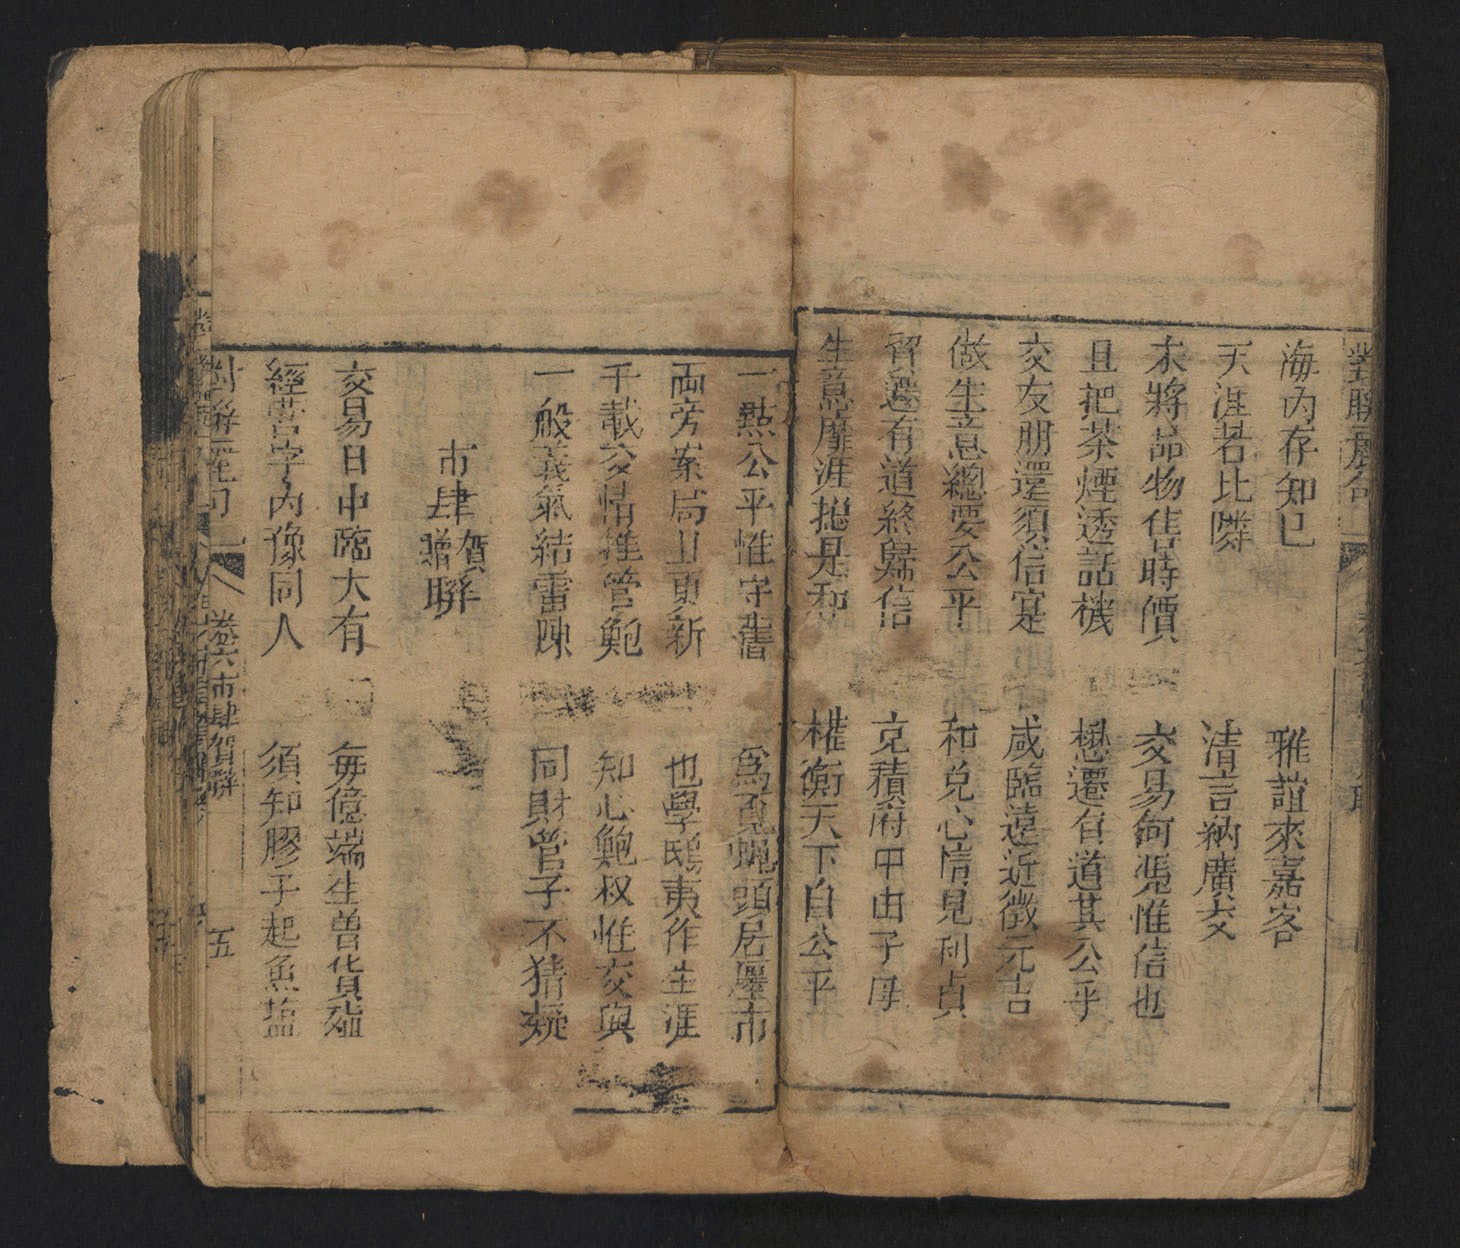 海內存知己
雅誼來嘉客
天涯若比隣
清言納廣交
末將品物售時價
交易何憑惟信也
且把茶煙透話機
懋遷有道其公乎
交友朋還須信寔
咸臨遠近徵元吉
做生意總要公平
和兌心情見利貞
貿遷有道終與信
克積府甲由子母
生意靡涯揔是和
權衡天下自公平
一㸃公平惟守舊
爲覓蝇頭居㕓市
両旁案局且更新
也學鴟夷作生涯
千載交情推管鮑
知心鮑叔惟交與
一般義氣結雷陳
同財管子不猜疑
市肆賀贈聯
交易日中臨大有
每億端生曾貨殖
經營字內像同人
須知膠子起魚塩
對聯
卷六市肆賀聯
五